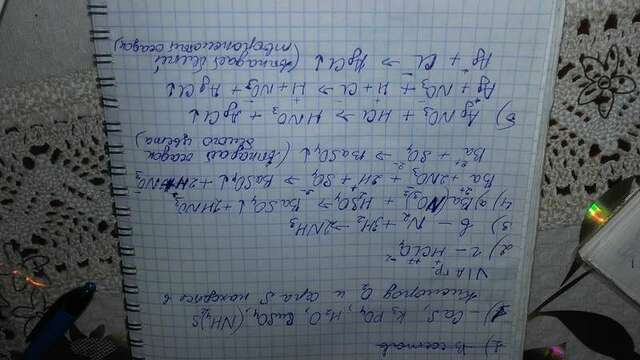 1) CaS, K₃PO₄, H₂O, CuSO₄, (NH₄)₂S
кислород O₂ и сера S находятся в
VI A гр.
2) 2 – HClO₄
3) – б – N₂ + 3H₂ → 2NH₃
4) а) Ba(NO₃)₂ + H₂SO₄ → BaSO₄↓ + 2HNO₃
Ba²⁺ + 2NO₃⁻ + 2H⁺ + SO₄²⁻ → BaSO₄↓ + 2H⁺ + 2NO₃⁻
Ba²⁺ + SO₄²⁻ → BaSO₄↓ (выпадает осадок
белого цвета)
б) AgNO₃ + HCl → HNO₃ + AgCl↓
Ag⁺ + NO₃⁻ + H⁺ + Cl⁻ → H⁺ + NO₃⁻ + AgCl↓
Ag⁺ + Cl⁻ → AgCl↓ (выпадает белый
творожистый осадок)